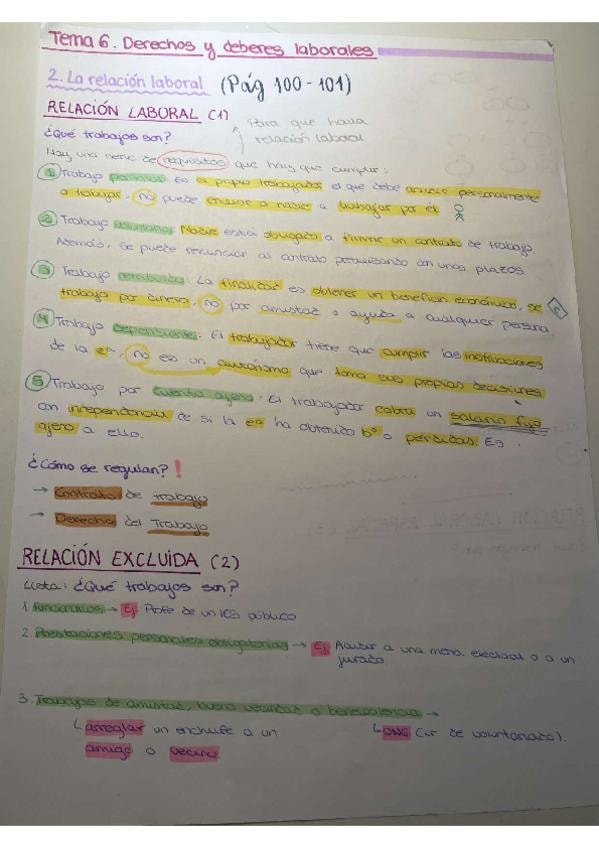 Tema 6. Derechos y deberes laborales
2. La relación laboral (Pág 100-101)
RELACIÓN LABORAL (1)
Para que haya
relación laboral
¿Qué trabajos son?
Hay una serie de requisitos que hay que cumplir:
1 Trabajo personal: Es el propio trabajador el que debe acudir personalmente
a trabajar, no puede enviar a nadie a trabajar por él
2 Trabajo voluntario: Nadie está obligado a firmar un contrato de trabajo.
Además, se puede renunciar al contrato preavisando con unos plazos
3 Trabajo retribuido: La finalidad es obtener un beneficio económico, se
trabaja por dinero, no por amistad o ayuda a cualquier persona.
4 Trabajo dependiente: El trabajador tiene que cumplir las instrucciones
de la eª, no es un autónomo que toma sus propias decisiones
5 Trabajo por cuenta ajena: El trabajador cobra un salario fijo
con independencia de si la eª ha obtenido bº o pérdidas. Es
ajeno a ello.
¿Cómo se regulan?!
→ Contrato de trabajo
→ Derecho del Trabajo
RELACIÓN EXCLUIDA (2)
Lista: ¿Qué trabajos son?
1 Funcionarios → Ej Profe de un IES público
2 Prestaciones personales obligatorias → Ej Acudir a una mesa electoral o a un
jurado
3 Trabajos de amistad, buena vecindad o benevolencia →
arreglar un enchufe a un
amigo o vecino.
ONG (ir de voluntariado).